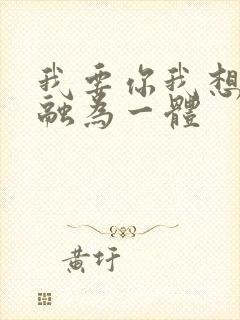 我要你我想
融為一體
黃圩